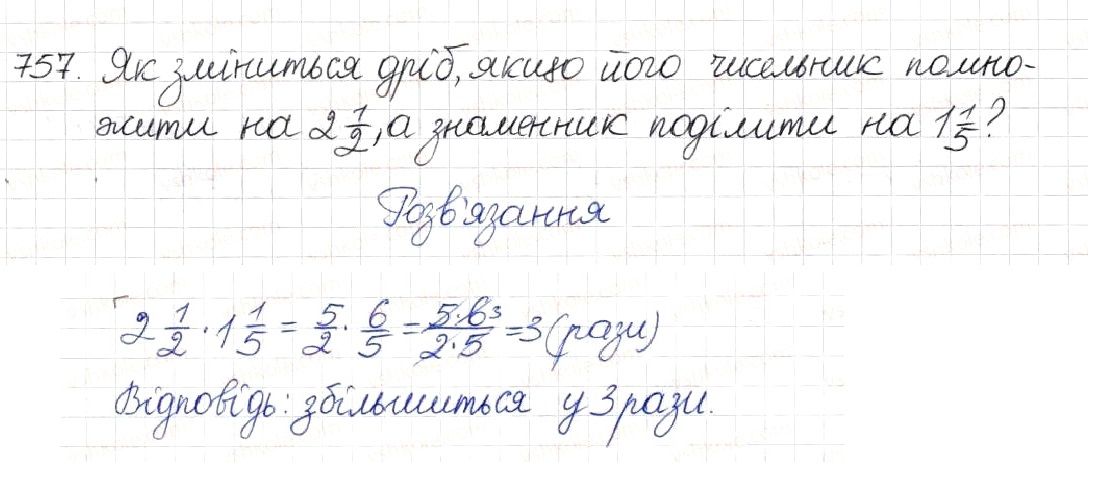 757. Як зміниться дріб, якщо його чисельник помно-
жити на 2 1/2, а знаменник поділити на 1 1/5?
Розв'язання
2 1/2 · 1 1/5 = 5/2 · 6/5 = 5·6 3/2·5 = 3 (рази)
Відповідь: збільшиться у 3 рази.